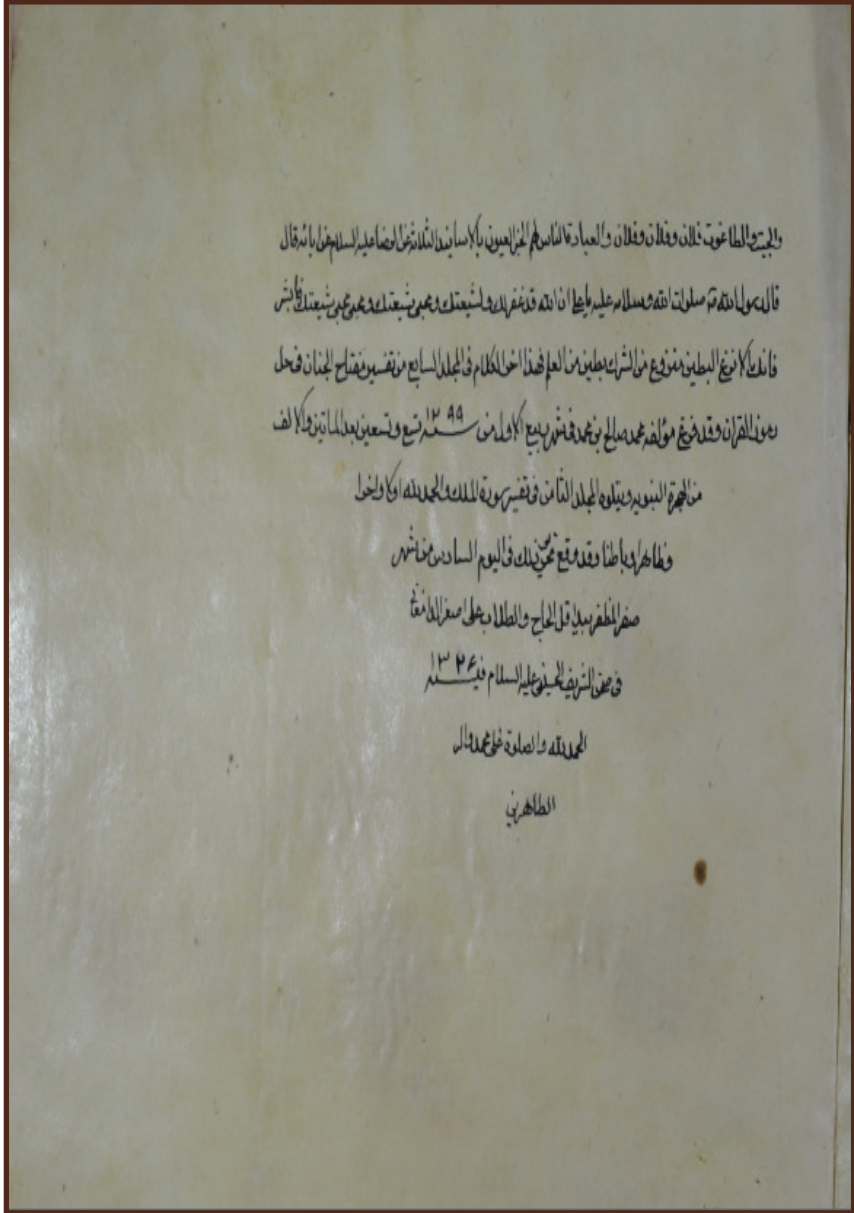 والجبت والطاغوت فلان وفلان وفلان والعبادة الناس لهم الخبر العيون بالاسانيد الثلاثة عن الرضا عليه السلام عن ابائه قال
قال رسول الله صلوات الله وسلامه عليه يا علي ان الله قد غفر لك ولشيعتك ومحبي شيعتك ومحبي محبي شيعتك فابشر
فانك الانزع البطين منزوع من الشرك بطين من العلم فهذا اخر الكلام فى المجلد السابع من تفسير مفتاح الجنان فى حل
رموز القران وقد فرغ مؤلفه محمد صالح بن محمد فى شهر ربيع الاول من سنه ١٢٩٩ تسع وتسعين بعد الماتين والالف
من الهجرة النبويه ويتلوه المجلد الثامن فى تفسير سورة الملك والحمد لله اولا واخرا
وظاهرا وباطنا وقد وقع تحرير ذلك فى اليوم السادس من شهر
صفر المظفر بيد اقل الحاج والطلاب على اصغر الدامغانى
فى الشريف الحسينى عليه السلام فى سنه ١٣٢۶
الحمد لله والصلوة على محمد واله
الطاهرين